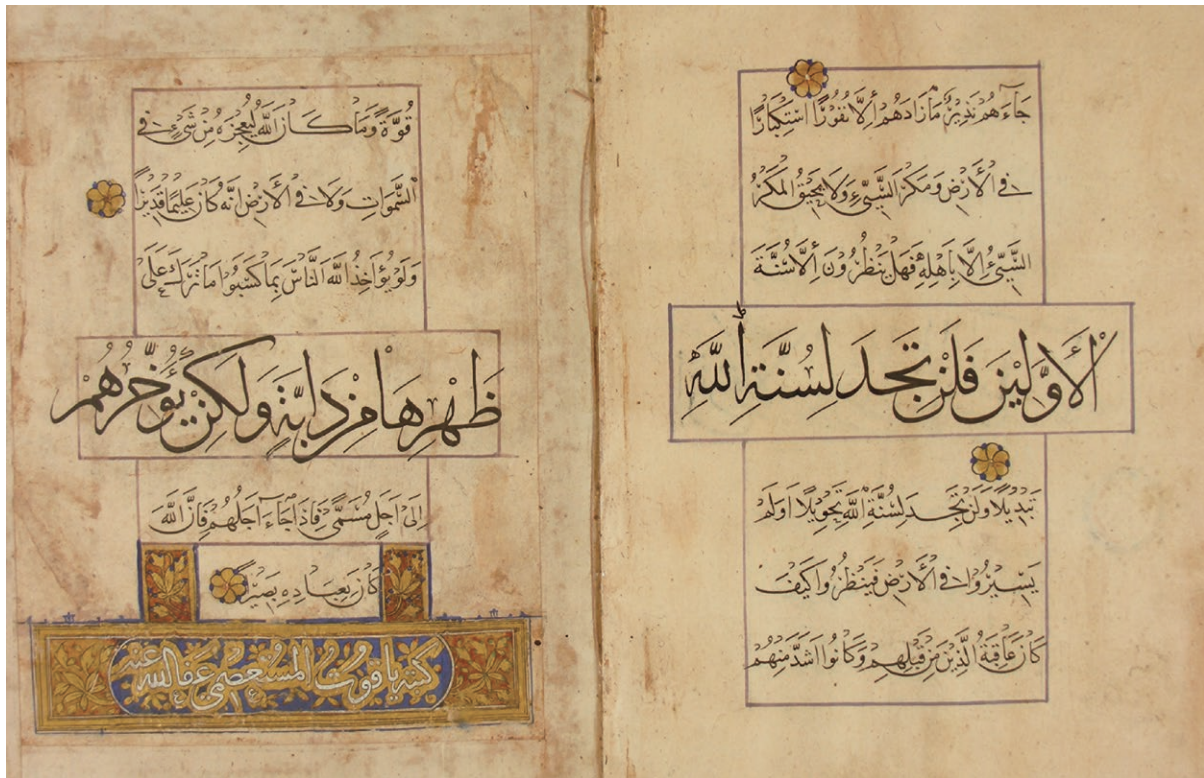 جَآءَهُمْ نَذِيرٌ مَا زَادَهُمْ اِلَّا نُفُورًا اسْتِكْبَارًا
فِى الْاَرْضِ وَمَكْرَ السَّيِّئِ وَلَا يَحِيقُ الْمَكْرُ
السَّيِّئُ اِلَّا بِاَهْلِهٖ فَهَلْ يَنْظُرُونَ اِلَّا سُنَّةَ
الْاَوَّلِينَ فَلَنْ تَجِدَ لِسُنَّةِ اللّٰهِ
تَبْدِيلًا وَلَنْ تَجِدَ لِسُنَّةِ اللّٰهِ تَحْوِيلًا اَوَلَمْ
يَسِيرُوا فِى الْاَرْضِ فَيَنْظُرُوا كَيْفَ
كَانَ عَاقِبَةُ الَّذِينَ مِنْ قَبْلِهِمْ وَكَانُوا اَشَدَّ مِنْهُمْ
قُوَّةً وَمَا كَانَ اللّٰهُ لِيُعْجِزَهُ مِنْ شَىْءٍ فِى
السَّمٰوَاتِ وَلَا فِى الْاَرْضِ اِنَّهُ كَانَ عَلِيمًا قَدِيرًا
وَلَوْ يُؤَاخِذُ اللّٰهُ النَّاسَ بِمَا كَسَبُوا مَا تَرَكَ عَلٰى
ظَهْرِهَا مِنْ دَابَّةٍ وَلٰكِنْ يُؤَخِّرُهُمْ
اِلٰى اَجَلٍ مُسَمًّى فَاِذَا جَآءَ اَجَلُهُمْ فَاِنَّ اللّٰهَ
كَانَ بِعِبَادِهٖ بَصِيرًا
كتبه ياقوت المستعصمي عفا الله عنه